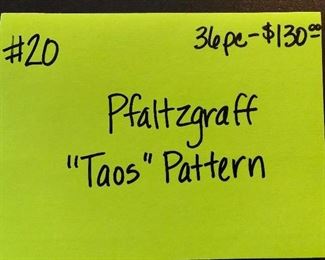 #20 36pc-$130.00
Pfaltzgraff
"Taos" Pattern